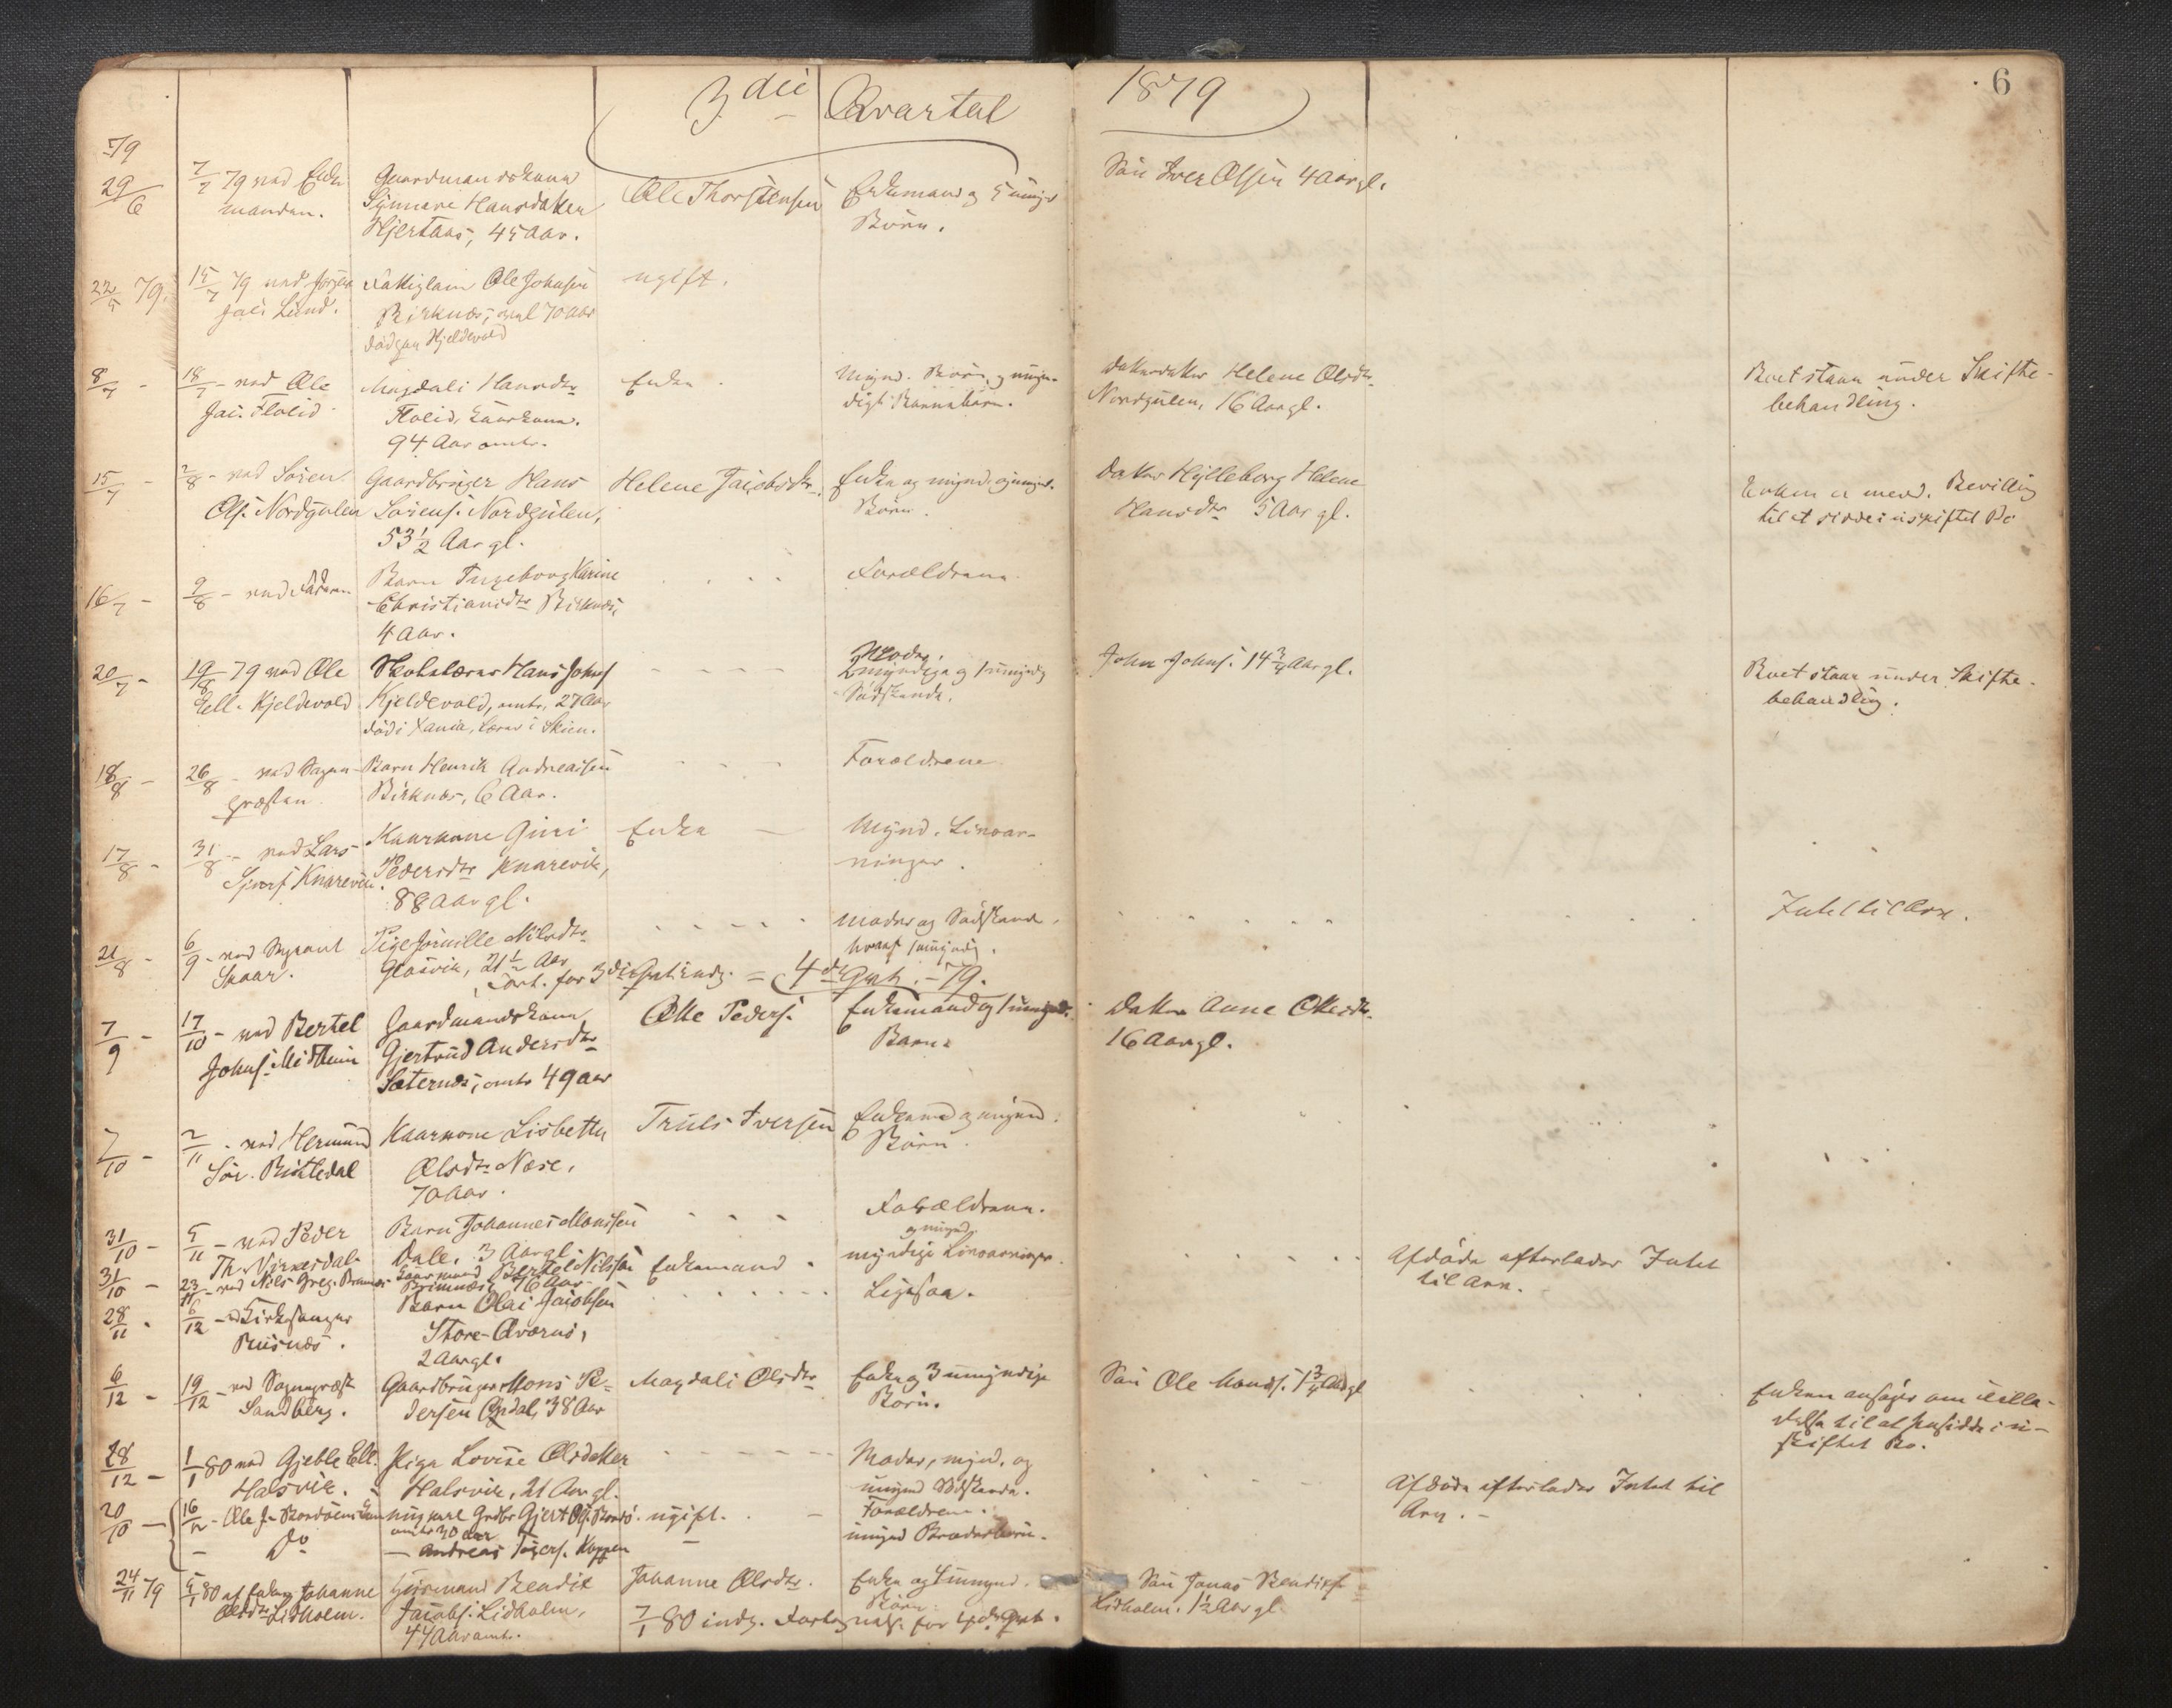 3die Qvartal 1879
6
79
29/6
7/7 79 ved Enke
manden.
Gaardmandskone
Synneve Hansdatter
Hjertaas, 45 Aar.
Ole Thorstensen
Enkemand og 5 umynd
Börn.
Sön Iver Olsen 4 Aar gl.
22/5 79.
15/7 79 ved
Jac. Lund.
Fattiglem Ole Johnsen
Birknæs, 70 Aar
död paa Kjeldevold
ugift.
8/7 -
18/7 - ved Ole
Jac. Flolid
Magdali Hansdtr
Flolid, Kaarkone.
94 Aar omtr.
Enke
Mynd. Börn og umyn-
digt Barnebarn.
Datterdatter Helene Olsdtr
Nordgulen, 16 Aar gl.
Boet staar under Skifte-
behandling.
15/7 -
2/8 - ved Sören
Ols. Nordgulen
Gaardbruger Hans
Sörens. Nordgulen,
53 1/2 Aar gl.
Helene Jacobsdtr.
Enke og mynd. og umynd.
Börn.
Datter Hylleborg Helene
Hansdtr 5 Aar gl.
Enken er medd. Bevilling
til at sidde i uskiftet Bo
16/7 -
9/8 - ved Faderen
Barn Ingeborg Karine
Christiansdtr Birknæs,
4 Aar.
Forældrene.
20/7 -
19/8 79 ved Ole
Ell. Kjeldevold
Skolelærer Hans Johns
Kjeldevold, omtr. 27 Aar
död i Xania, Lærer i Skien.
Moder.
2 myndige og 1 umyndig
Södskende.
John Johns. 14 3/4 Aar gl.
Boet staar under Skifte-
behandling.
18/8 -
26/8 - ved Sogne-
præsten
Barn Henrik Andreassen
Birknæs, 6 Aar.
Forældrene
17/8 -
31/8 - ved Lars
Knarevik.
Kaarkone Guri
Pedersdtr Knarevik,
88 Aar gl.
Enke
Mynd. Livsar-
vinger.
21/8 -
6/9 - ved
Skaar.
Pige Nilsdtr
Glosvik, 21 1/2 Aar
Moder og Södskende,
hvoraf 1 umyndig.
Intet til Arv.
Fort. for 3die Qvt. indg. = 4de Qvt. - 79.
7/9 -
17/10 - ved Bertel
Johns.
Gaardmandskone
Gjertrud Andersdtr
Sæternæs, omtr 49 Aar
Olle Peders.
Enkemand og 1 umynd.
Barn.
Datter Anne Ollesdtr.
16 Aar gl.
7/10 -
2/11 - ved Hermund
Sör. Risledal
Kaarkone Lisbeth
Olsdtr Nese,
70 Aar.
Truls Iversen
Enkemd og mynd.
Börn.
31/10 -
5/11 - ved Peder
Th. Virkesdal
Barn Johannes Monssen
Dale, 3 Aar gl.
Forældrene.
31/10 -
23/11 - ved Nils Greg. Brannæs
Kaarmand Bertel Nilssen
Brimnæs, 76 Aar
Enkemand
og umynd.
myndige Livsarvinger.
Afdöde efterlader Intet
til Arv.
28/11 -
6/12 - v Kirkesanger
Risnæs.
Barn Olai Jacobsen
Store-Qværnö,
2 Aar gl.
Ligesaa.
6/12 -
19/12 - ved Sognepræst
Sandberg.
Gaardbruger Mons Pe-
dersen Opdal, 38 Aar
Magdali Olsdtr
Enke og 3 umyndige
Börn.
Sön Ole Monss. 1 3/4 Aar gl
Enken ansöger om Tilla-
delse til at hensidde i u-
skiftet Bo.
28/12 -
1/1 80 ved Gjeble Ell.
Halsvik.
Pige Lovise Olsdatter
Halsvik, 21 Aar gl.
Moder, mynd. og
umynd Södskende.
Afdöde efterlader Intet til
Arv. -
20/10 -
16/12 - Ole J.
ungkarl Gjert Ols.
omtr 30 Aar
ugift.
Forældrene.
- Do
- Andreas
umynd Broderbörn.
24/11 79
5/1 80 af Enken Johanne
Olsdtr Lidholm.
Huusmand Bendik
Jacobs. Lidholm,
44 Aar omtr.
Johanne Olsdtr.
Enke og 4 umynd.
Börn.
Sön Jonas Bendiks
Lidholm. 1 1/2 Aar gl.
7/1 80 indg. Fortegnelse for 4de Qvt.